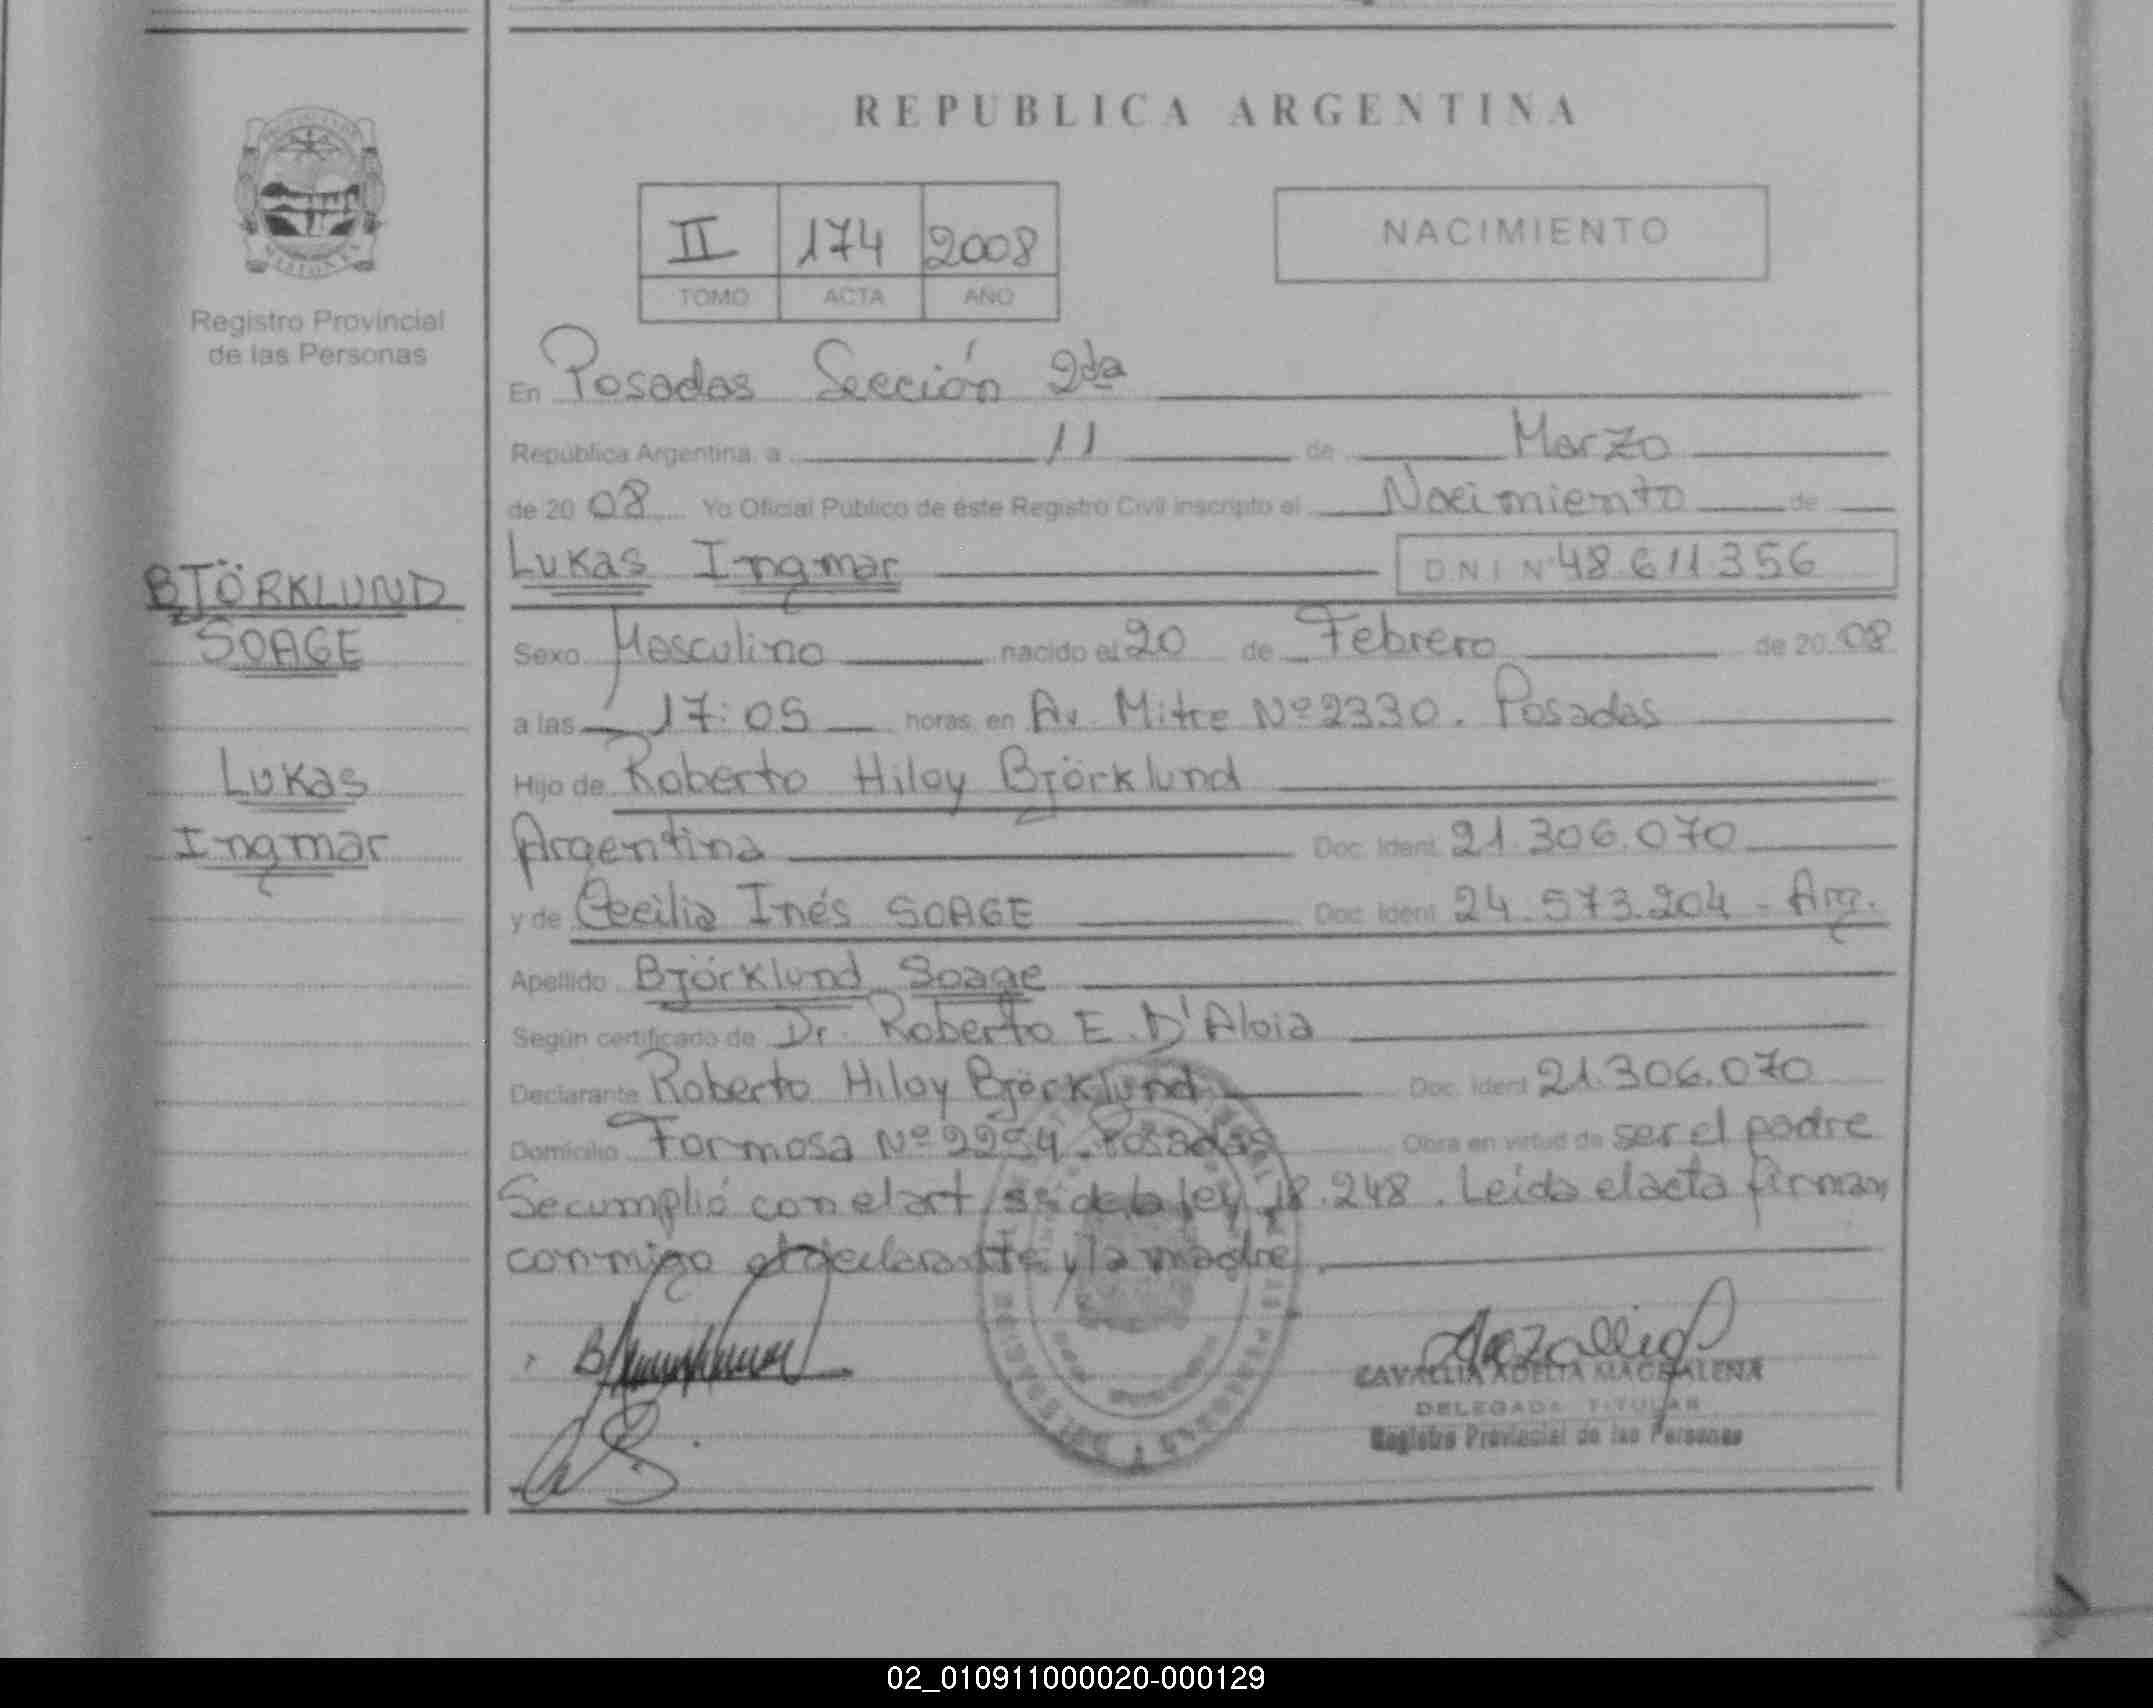 REPUBLICA ARGENTINA
II 174 2008
TOMO ACTA AÑO
NACIMIENTO
MISIONES
Registro Provincial
de las Personas
BJÖRKLUND
SOAGE
Lukas
Ingmar
En Posadas Sección 2da
República Argentina, a 11 de Marzo
de 20 08 Yo Oficial Público de éste Registro Civil inscripto el Nacimiento de
Lukas Ingmar DNI Nº 48.611.356
Sexo Masculino nacido el 20 de Febrero de 20 08
a las 17:05 horas, en Av. Mitre Nº 2330. Posadas
Hijo de Roberto Hiloy Björklund
Argentina Doc. Ident. 21.306.070
y de Cecilia Inés SOAGE Doc. Ident. 24.573.204 - Arg.
Apellido Björklund Soage
Según certificado de Dr. Roberto E. D'Aloia
Declarante Roberto Hiloy Björklund Doc. Ident. 21.306.070
Domicilio Formosa Nº 2254. Posadas Obra en virtud de ser el padre
Se cumplió con el art de la ley 18.248. Leída el acta firman
conmigo el declarante y la madre.
CAVALLIA ADELIA MAGDALENA
DELEGADA TITULAR
Registro Provincial de las Personas
02_010911000020-000129